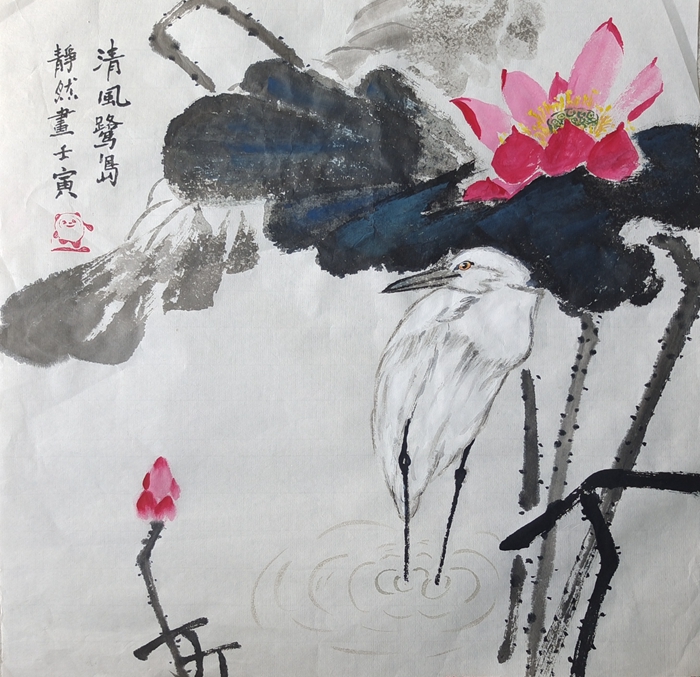 清風鷺島
靜然畫壬寅